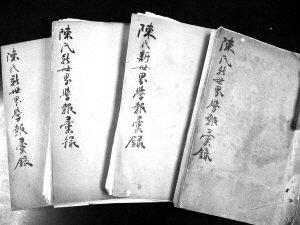 陳氏新世界學報彙錄
陳氏新世界學報彙錄
陳氏新世界學報彙錄
陳氏新世界學報彙錄